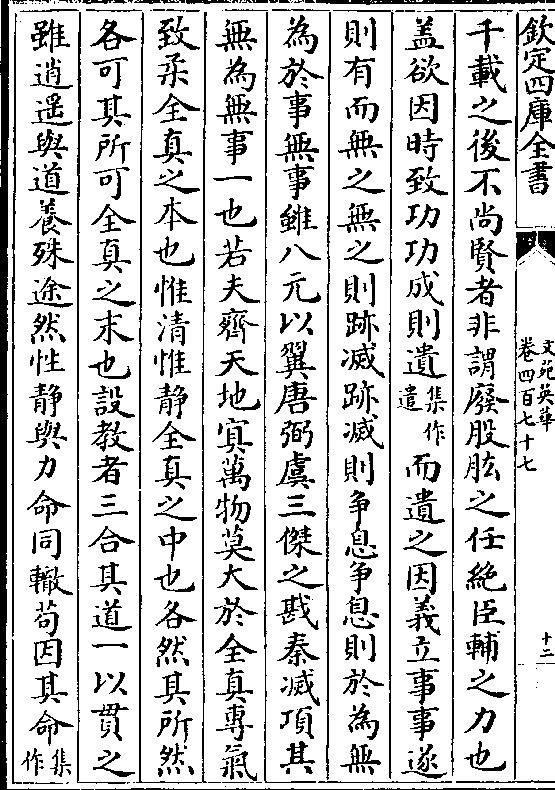 欽定四庫全書
文苑英華
卷四百七十七
十三
千載之後不尚賢者非謂廢股肱之任絶臣輔之力也
盖欲因時致功功成則遺集作遣而遺之因義立事事遂
則有而無之無之則跡滅跡滅則争息争息則於為無
為於事無事雖八元以翼唐弼虞三傑之戡秦滅項其
無為無事一也若夫齊天地寘萬物莫大於全真專氣
致柔全真之本也惟清惟静全真之中也各然其所然
各可其所可全真之末也設教者三合其道一以貫之
雖逍遥與道養殊途然性静與力命同轍苟因其命集作